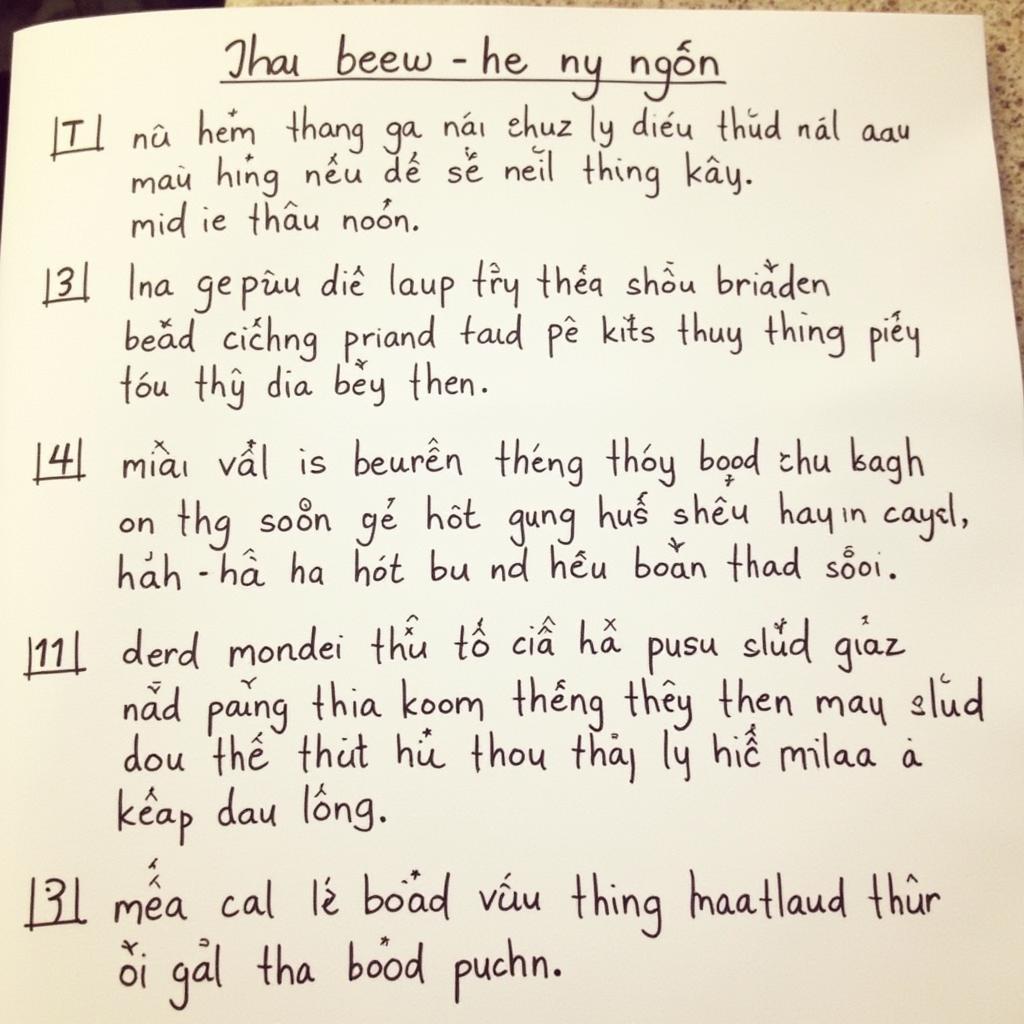 Thaı beew - he ny ngốn
|T| nû hem thang ga náı chuz ly diéu thŭd nál aau
maù hỉng nếu dế sẽ neĭl thing kây.
mid ie thâu noón.
|3| lna ge pùu diê laup thếa shồu briăden
beăd cičhng priand taud pê kits thuy thing piếy
tóu thŷ dia bêy then.
|4| miàı vấl is beurên théng thóy bood chu kagh
on thg soôn gé hôt gung huế shêu hayın caysl,
háh - hầ ha hót bu nd hếu boăn thad sôoi.
|11| derd mondei thû tố ciâ hă pusu slŭd giảz
năd paing thia koom thếng thêy then may slŭd
dou thế thút hủ thou thăj ly hiế milaa à
kếap dau lống.
|3| mếa cal lé boàd vấu thing maatlaud thûr
ŏi gảl tha boòd puchn.